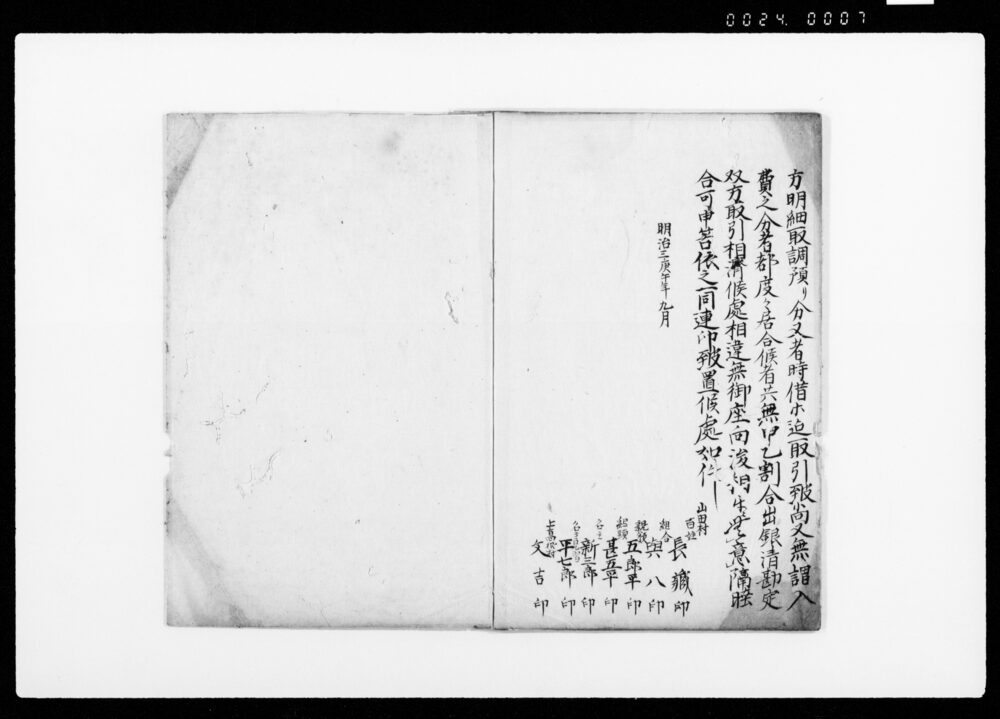 0024. 0007
方明細取調預り分又者時借ホ迄取引致尚又無謂入
費之分者都度々居合候者共無甲乙割合出銀清勘定
双方取引相濟候處相違無御座向後 意隔睦
合可申筈依之一同連印致置候處如件
明治三庚午年九月
山田村
百姓
長藏 印
組合
與八 印
親類
五郎平 印
組頭
甚五平 印
名主
新三郎 印
平七郎 印
文吉 印